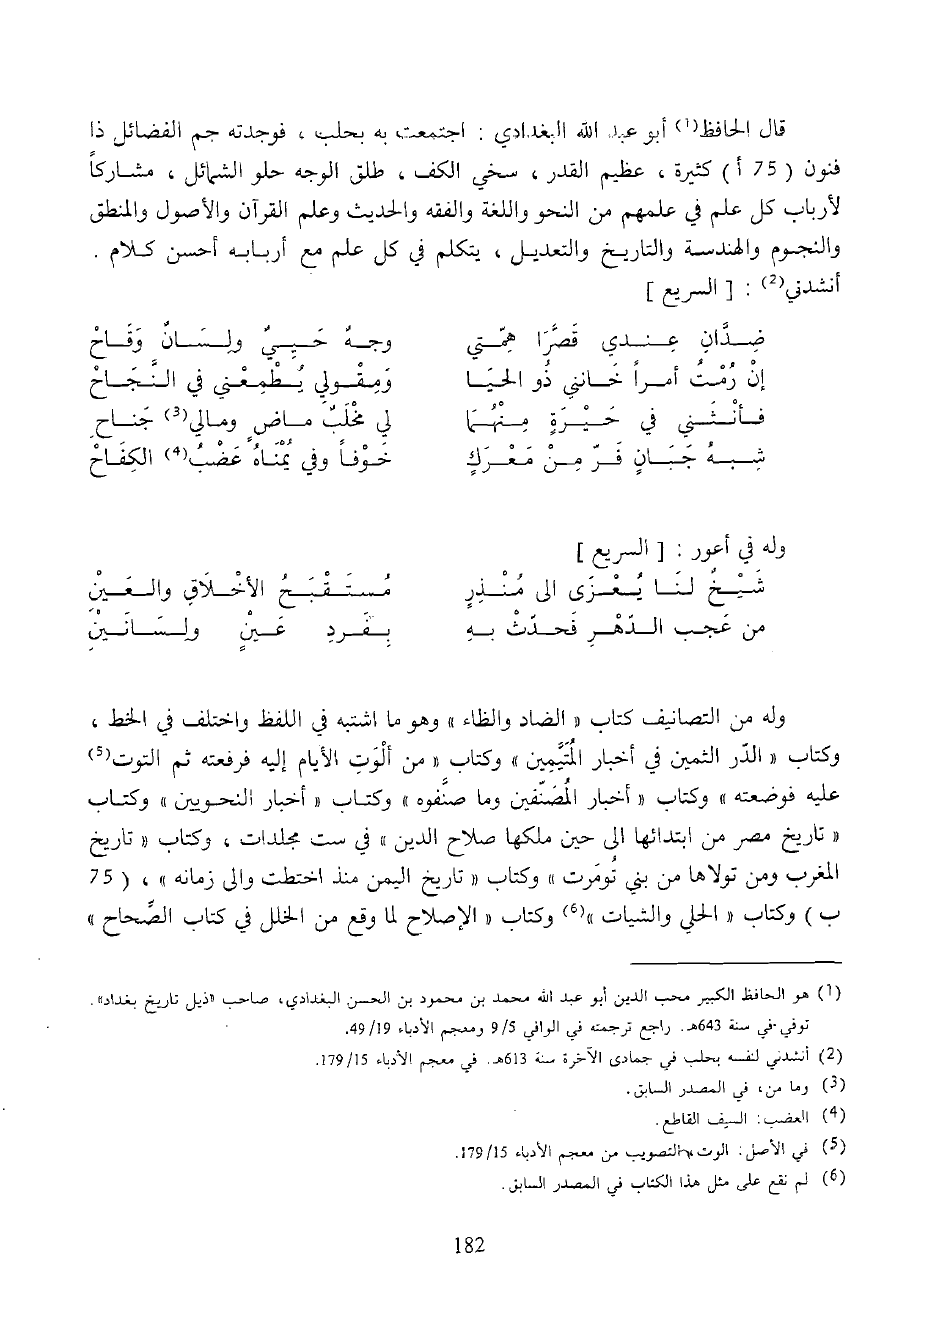 قال الحافظ(1) أبو عبد الله البغدادي : اجتمعت به بحلب ، فوجدته جم الفضائل ذا
فنون ( 75 أ ) كثيرة ، عظيم القدر ، سخي الكف ، طلق الوجه حلو الشمائل ، مشاركاً
لأرباب كل علم في علمهم من النحو واللغة والفقه والحديث وعلم القرآن والأصول والمنطق
والنجوم والهندسة والتاريخ والتعديل ، يتكلم في كل علم مع أربابه أحسن كلام .
أنشدني(2) : [ السريع ]
ضدَّان عندي قصَّرَا همَّتي وجهٌ حَييٌّ ولسانٌ وَقَاحْ
إن رُمْتُ أمراً خانني ذو الحَيَا وَمِقْولي يُطْمِعُني في النَّجَاحْ
فأنثني في حَيْرَةٍ منهُمَا لي مخْلَبٌ ماضٍ ومالي(3) جَناحِ
شبهَ جَبَانٍ فَرَّ مِنْ مَعْرَكٍ خوفاً وفي يُمْنَاهُ عَضْبُ(4) الكفَاحْ
وله في أعور : [ السريع ]
شَيْخٌ لَنَا يُعْزَى الى مُنْذِرٍ مُسْتَقْبَحُ الأخْلاقِ والعَيْنِ
من عَجَب الدَّهْرِ فَحَدِّثْ به بفَردِ عَيْنٍ ولسَانَيْنِ
وله من التصانيف كتاب « الضاد والظاء » وهو ما اشتبه في اللفظ واختلف في الخط ،
وكتاب « الدّر الثمين في أخبار المُتَيَّمين » وكتاب « من ألْوَت الأيام إليه فرفعته ثم التوت(5)
عليه فوضعته » وكتاب « أخبار المُصَنِّفين وما صنَّفوه » وكتاب « أخبار النحويين » وكتاب
« تاريخ مصر من ابتدائها الى حين ملكها صلاح الدين » في ست مجلدات ، وكتاب « تاريخ
المغرب ومن تولاها من بني تُومَرت » وكتاب « تاريخ اليمن منذ اختطت والى زمانه » ، ( 75
ب ) وكتاب « الحلي والشيات »(6) وكتاب « الإصلاح لما وقع من الخلل في كتاب الصَّحاح »
(1) هو الحافظ الكبير محب الدين أبو عبد الله محمد بن محمود بن الحسن البغدادي، صاحب «ذيل تاريخ بغداد».
توفي في سنة 643هـ. راجع ترجمته في الوافي 9/5 ومعجم الأدباء 49/19.
(2) أنشدني لنفسه بحلب في جمادى الآخرة سنة 613هـ. في معجم الأدباء 179/15.
(3) وما من، في المصدر السابق.
(4) العضب: السيف القاطع.
(5) في الأصل: الوت، والتصويب من معجم الأدباء 179/15.
(6) لم نقع على مثل هذا الكتاب في المصدر السابق.
182